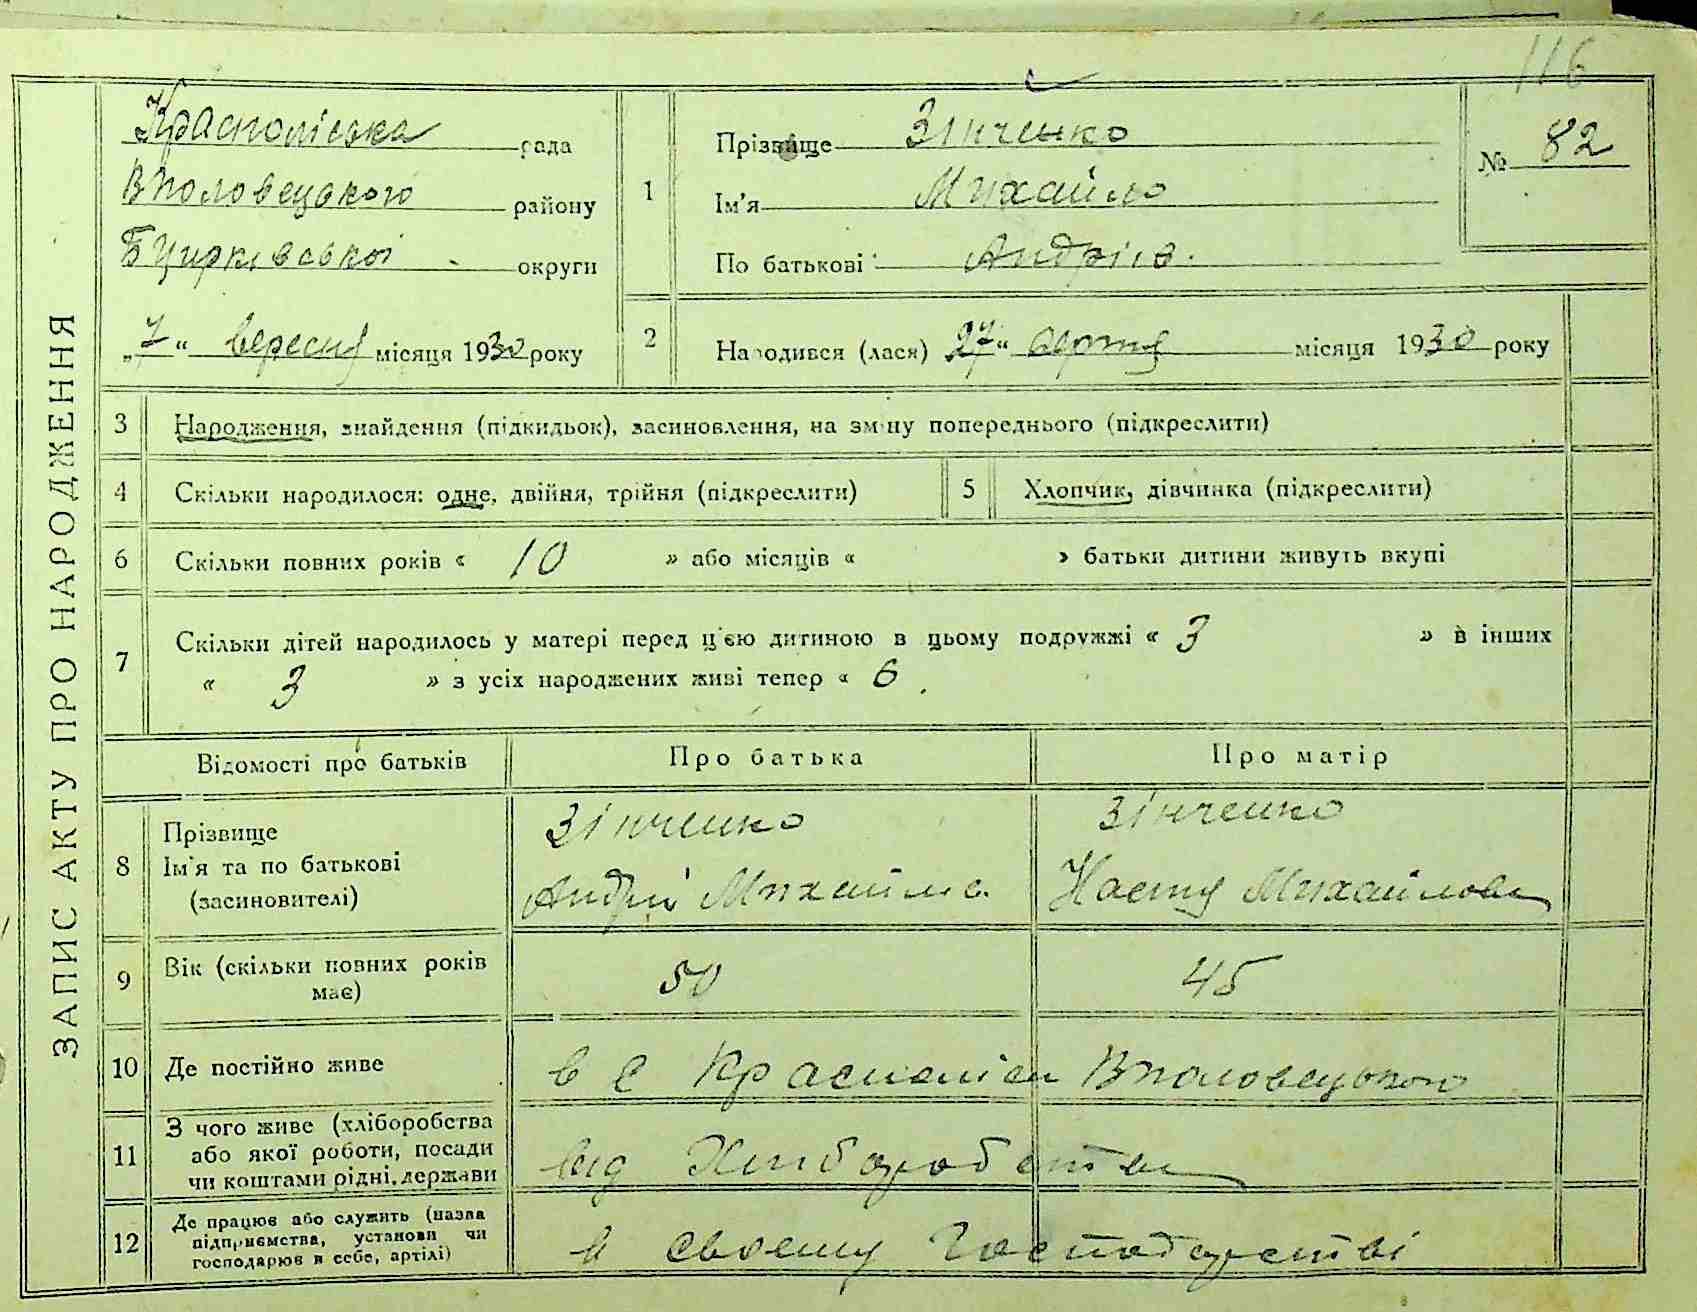 116
ЗАПИС АКТУ ПРО НАРОДЖЕННЯ
Красноліська рада
Вполовецького району
Бцирківської округи
„7“ вересня місяця 1930 року
1
Прізвище Зінченко
Ім'я Михайло
По батькові Андріїв.
№ 82
2
Народився (лася) 27“ серпня місяця 1930 року
3 Народження, знайдення (підкидьок), засиновлення, на зміну попереднього (підкреслити)
4 Скільки народилося: одне, двійня, трійня (підкреслити)
5 Хлопчик, дівчинка (підкреслити)
6 Скільки повних років « 10 » або місяців « » батьки дитини живуть вкупі
7 Скільки дітей народилось у матері перед ц'єю дитиною в цьому подружжі « 3 » в інших
« 3 » з усіх народжених живі тепер « 6 .
Відомості про батьків Про батька Про матір
8 Прізвище
Ім'я та по батькові
(засиновителі)
Зінченко
Андрій Михайлов.
Зінченко
Настя Михайлова
9 Вік (скільки повних років
має)
50 45
10 Де постійно живе в с Краснолісы Вполовецького
11 З чого живе (хліборобства
або якої роботи, посади
чи коштами рідні, держави
від Хліборобства
12 Де працює або служить (назва
підприємства, установи чи
господарює в себе, артілі)
в своєму Господарстві